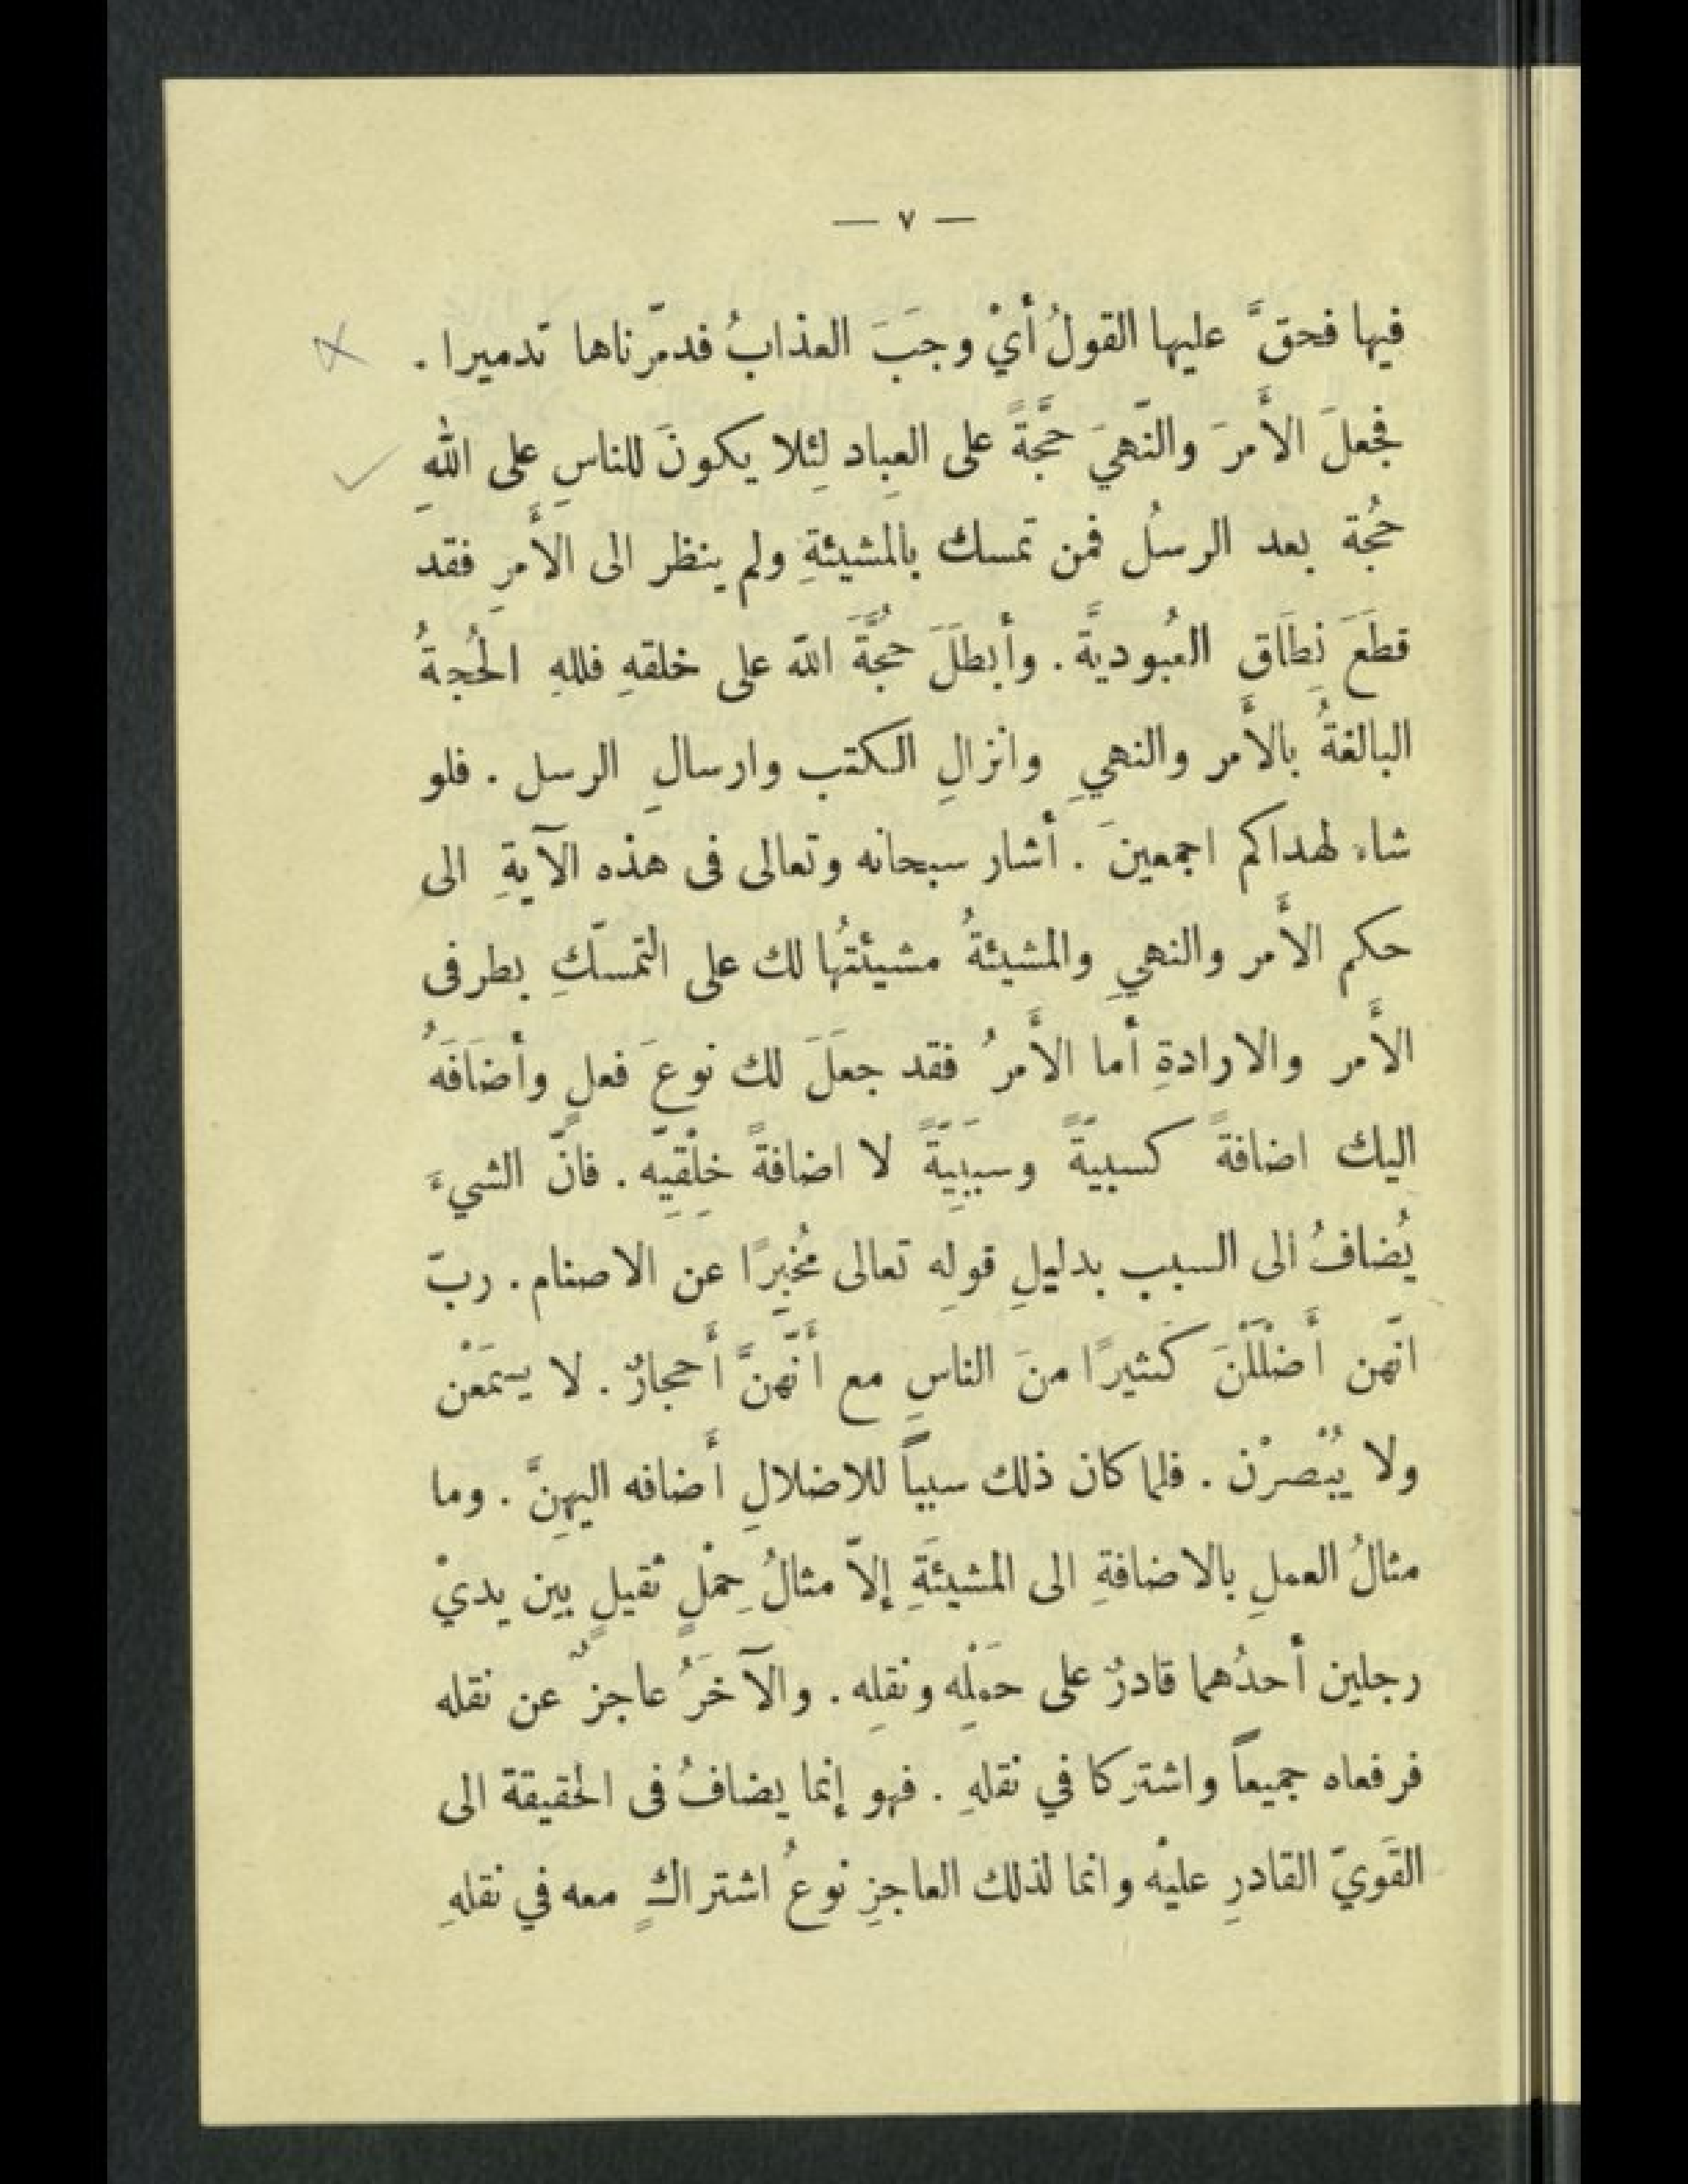 — ٧ —
فيها فحقَّ عليها القولُ أيْ وجَبَ العذابُ فدمّرناها تدميرا .
فجعلَ الأَمرَ والنّهيَ حجَّةً على العِباد لِئلا يكونَ للناسِ على اللهِ
حجُة بعد الرسلُ فمن تمسك بالمشيئةِ ولم ينظر الى الأَمرِ فقد
قطَعَ نِطَاق العُبوديَّة . وأبطَلَ حجُّةَ الله على خلقهِ فللهِ الحُجةُ
البالغةُ بالأَمر والنهيِ وانزالِ الكتب وارسالِ الرسل . فلو
شاء لهداكم اجمعينَ . أشار سبحانه وتعالى فى هذه الآيةِ الى
حكم الأَمر والنهيِ والمشيئةُ مشيئتُها لك على التمسّكِ بطرفى
الأَمر والارادةِ أما الأَمرُ فقد جعَلَ لك نوعَ فعلٍ وأضَافَهُ
اليك اضافةً كسبيّةً وسببِيّةً لا اضافةً خِلْقيّه . فانّ الشيءَ
يُضافُ الى السبب بدليلِ قولِه تعالى مُخبِرًا عن الاصنام . ربّ
انّهن أَضْلَلْنَ كَثيرًا منَ الناسِ مع أَنّهنَّ أَحجارٌ . لا يسمَعْن
ولا يُبْصرْن . فلما كان ذلك سبباً للاضلالِ أَضافه اليهِنَّ . وما
مثالُ العملِ بالاضافةِ الى المشيئَةِ إلاّ مثالُ حِمْلٍ ثقيلٍ بين يديْ
رجلين أحدُهما قادرٌ على حمَلِْه ونقلِه . والآخَرُ عاجزٌ عن نقله
فرفعاه جميعاً واشتركا في نقلهِ . فهو إنما يضافُ فى الحقيقة الى
القَويّ القادرِ عليْه وانما لذلك العاجزِ نوعُ اشتراكٍ معه في نقلهِ